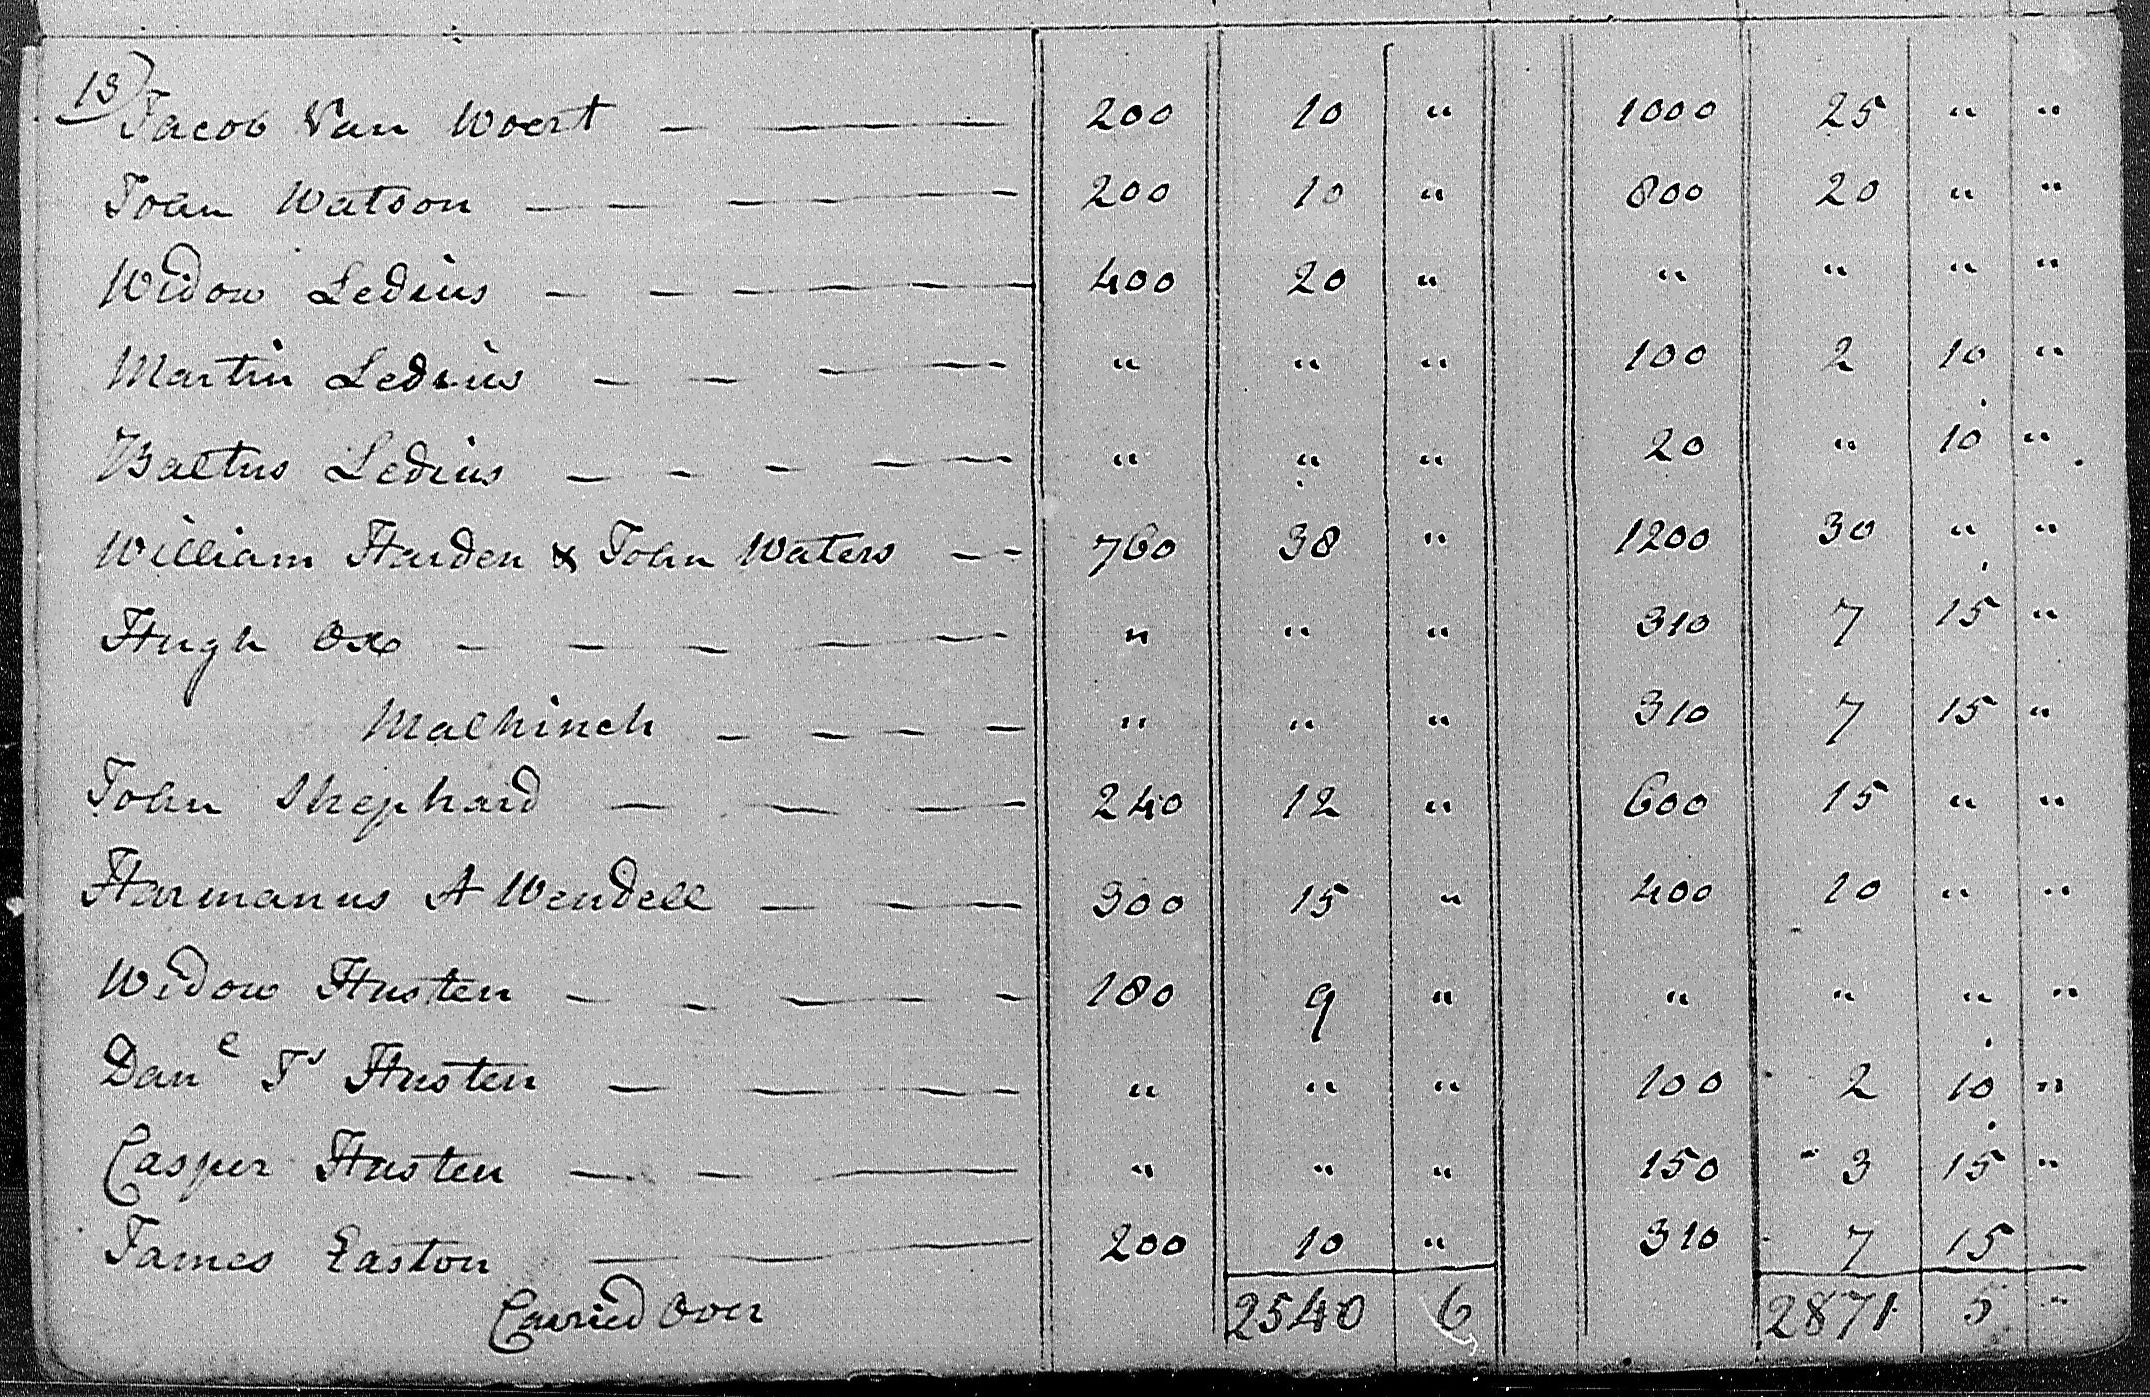 13)
Jacob Van Woert — — — 200 10 " 1000 25 " "
John Watson — — — — — 200 10 " 800 20 " "
Widow Ledius — — — — — 400 20 " " " " "
Martin Ledius — — — — " " " 100 2 10 "
Baltus Ledius — — — — — " " " 20 " 10 "
William Harden & John Waters — — 760 38 " 1200 30 " "
Hugh Ox — — — — — " " " 310 7 15 "
Malhinch — — — — " " " 310 7 15 "
John Shephard — — — 240 12 " 600 15 " "
Harmanus A Wendell — — — 300 15 " 400 10 " "
Widow Husten — — — — — 180 9 " " " " "
Dan l Js Husten — — — — " " " 100 2 10 "
Casper Husten — — — " " " 150 3 15 "
James Easton — — 200 10 " 310 7 15
Carried Over 2540 6 2871 5 "